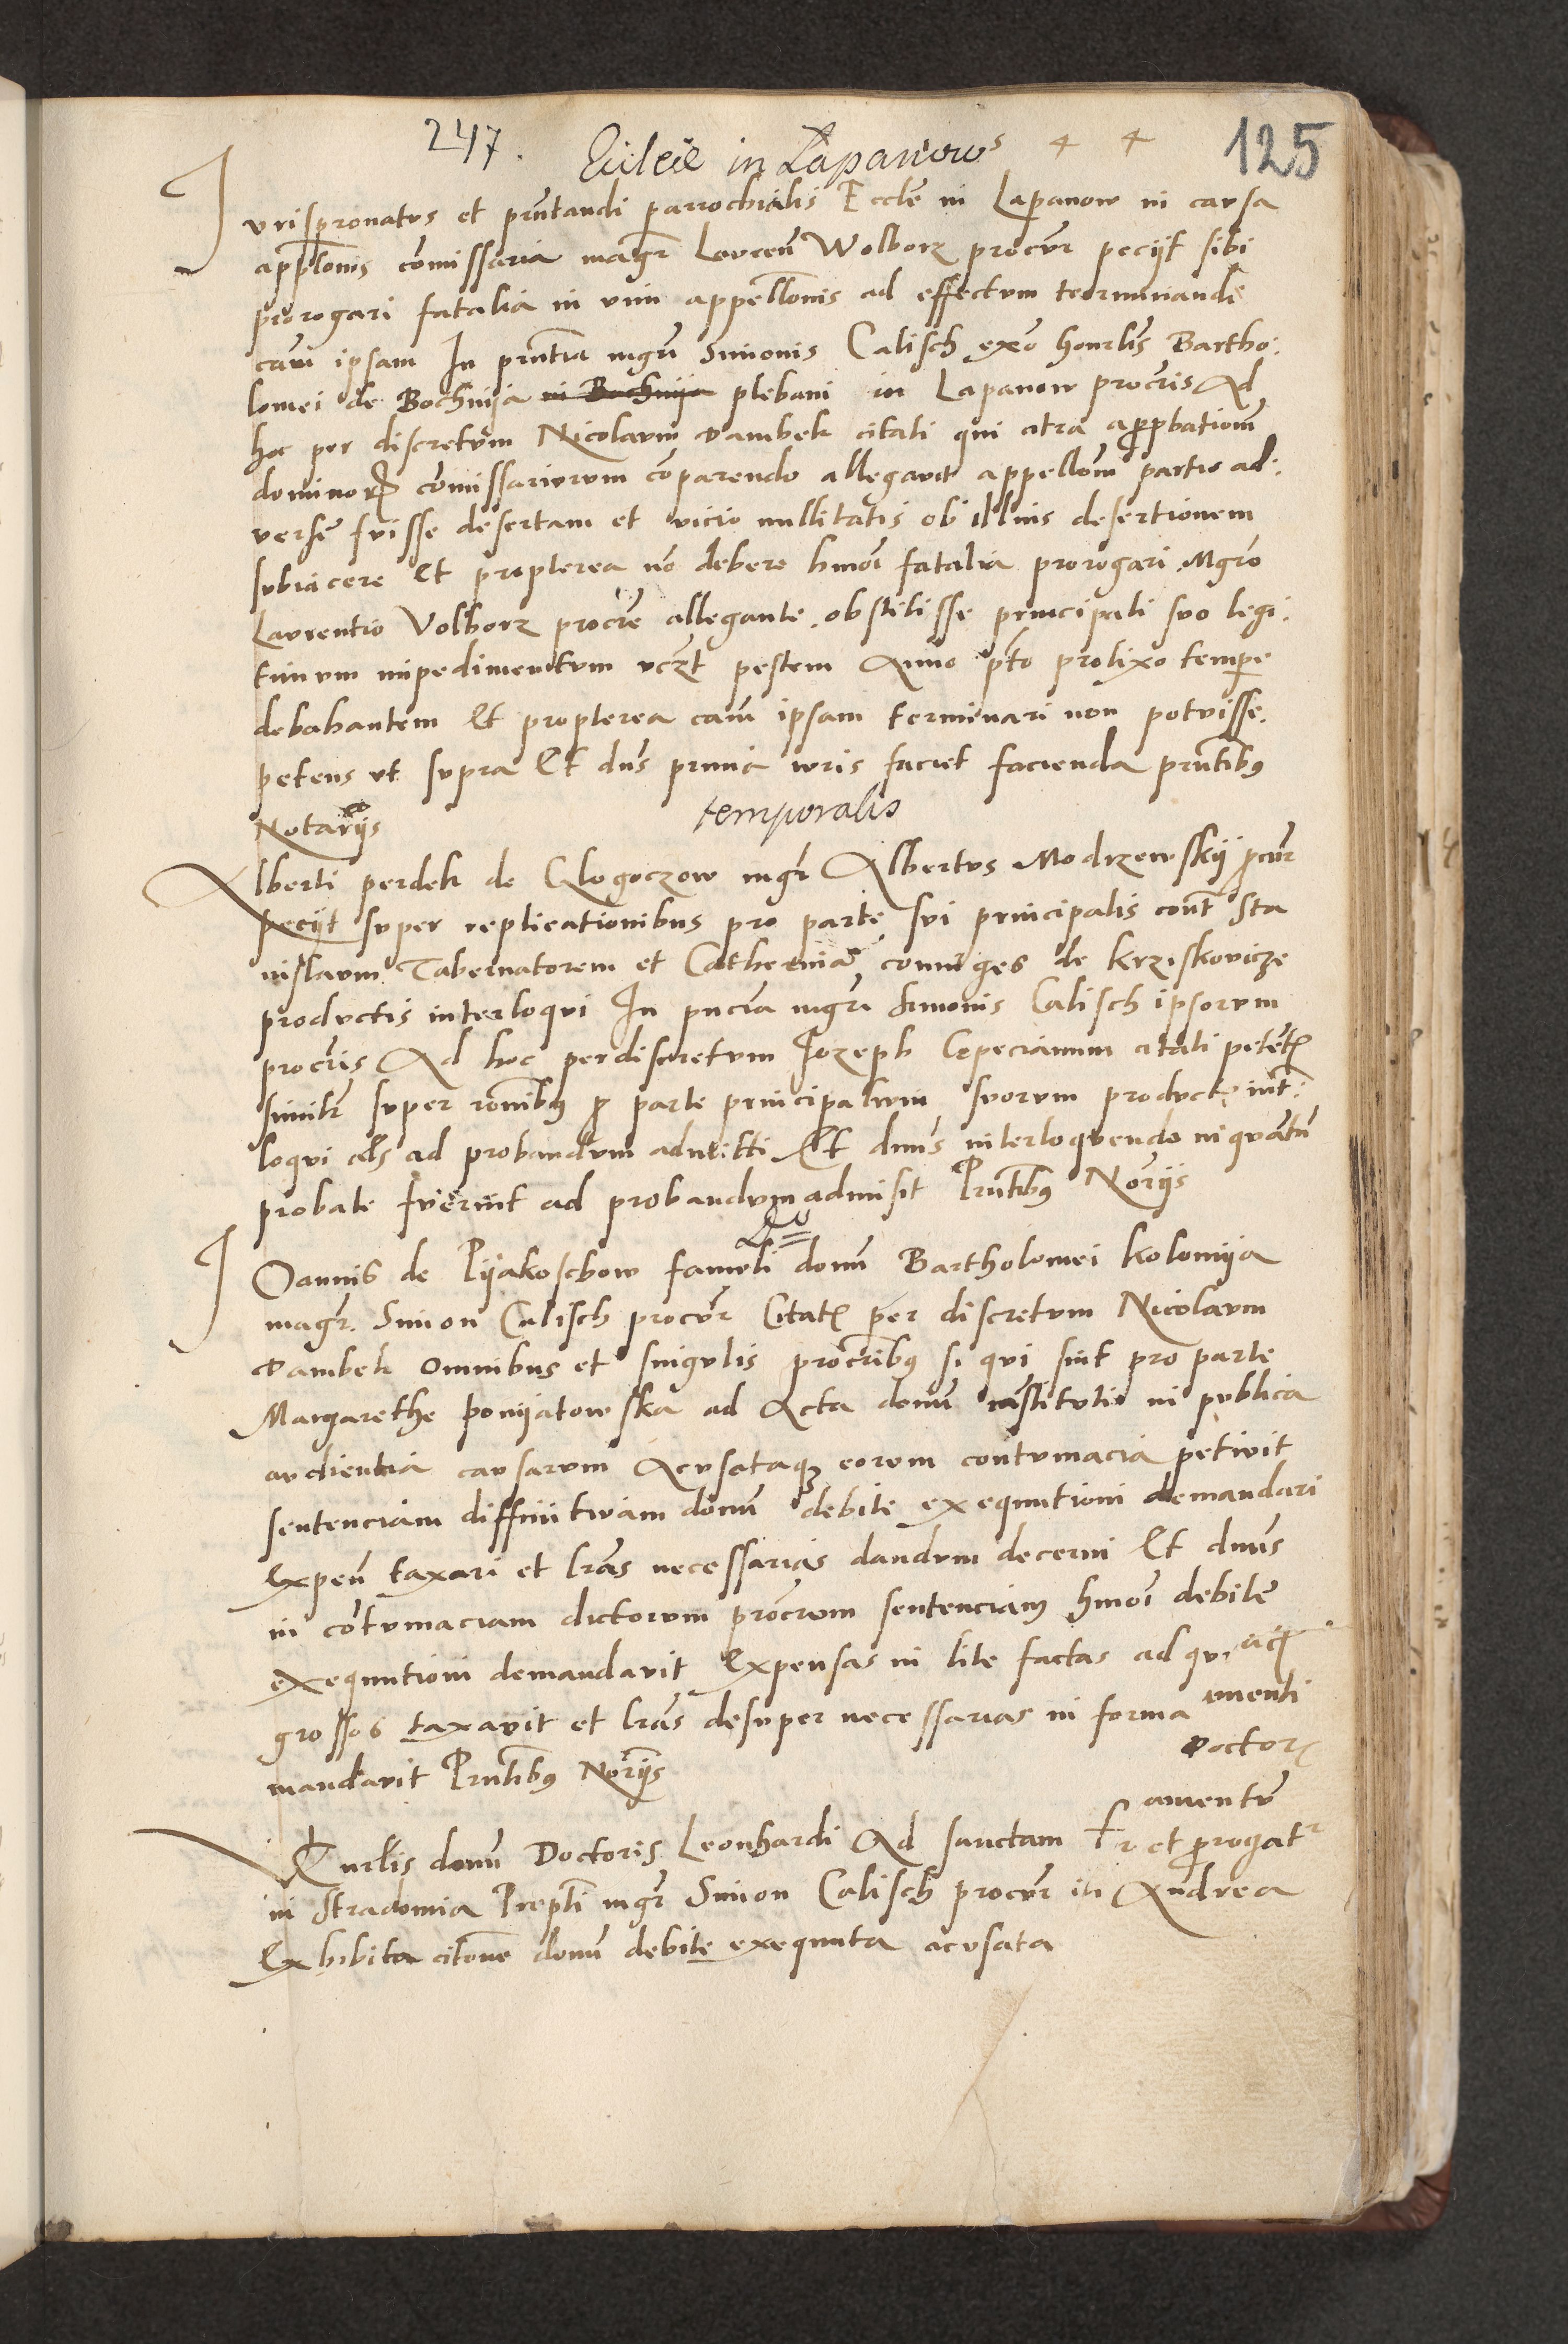 247. in Lapanow 125
Jurispronatus et prntandi parrochialis Eccle in Lapanow in causa
appltonis comissaria magr Laurcen Wolborz procur peciit sibi
prorogari fatalia in vim appellonis ad effectum terminande
cam ipsam In prntia mgri Simonis Calisch exo honrlis Bartho:
lomei de Bochnija in Bochnija plebani in Lapanow procris Ad
hoc per discretum Nicolaum Dambek citati qui citra approbationem
dominor comissariorum comparendo allegavit appellom partis ad:
verse fuisse desertam et vicio nullitatis ob illius desertionem
subiacere Et propterea no debere hmoi fatalia prorogari Mgro
Laurentio Volborz procre allegante obstitisse principali suo legi:
timum impedimentum vczt pestem Anno pto prolixo tempe
debahantem Et propterea cam ipsam terminari non potuisse.
petens ut supra Et dns premia iuris faciet facienda prntibus
Notariis
temporalis
Alberti perdek de Glogoczow mgr Albertus Modrzewskij procur
peciit super replicationibus pro parte sui principalis cont Sta
nislaum Tabernatorem et Catherina coniuges de Krziskovicze
productis interloqui In pncia mgri Simonis Calisch ipsorum
procris Ad hoc per discretum Jozeph Cepecianum citati petent
similr super ronibus p parte principalium suorum product int:
loqui als ad probandum admitti Et dnus interloquendo inquantu
probate fuerint ad probandum admisit Prntibus Noriis
Joannis de Pijakoschow famuli donu Bartholomei Kolomija
magr. Simon Calisch procur Citat per discretum Nicolaum
Dambek omnibus et singulis procribus si qui sint pro parte
Margarethe ponijatowska ad Acta donu institutis in publica
audientia causarum Acusataq eorum contumacia petivit
sentenciam diffinitivam donu debite exequutioni demandari
Expen taxari et lras necessarias dandum decerni Et dnus
in contumaciam dictorum procrum sentenciam hmoi debite
exequutioni demandavit Expensas in lite factas ad
grossos taxavit et lras desuper necessarias in forma
mandavit Prntibus Noriis
umenti
Doctor
amentu
donu Doctoris Leonhardi Ad sanctam
et progat
in Stradomia Prepti mgr Simon Calisch procur in Andrea
Exhibita citone donu debite exequuta acusata